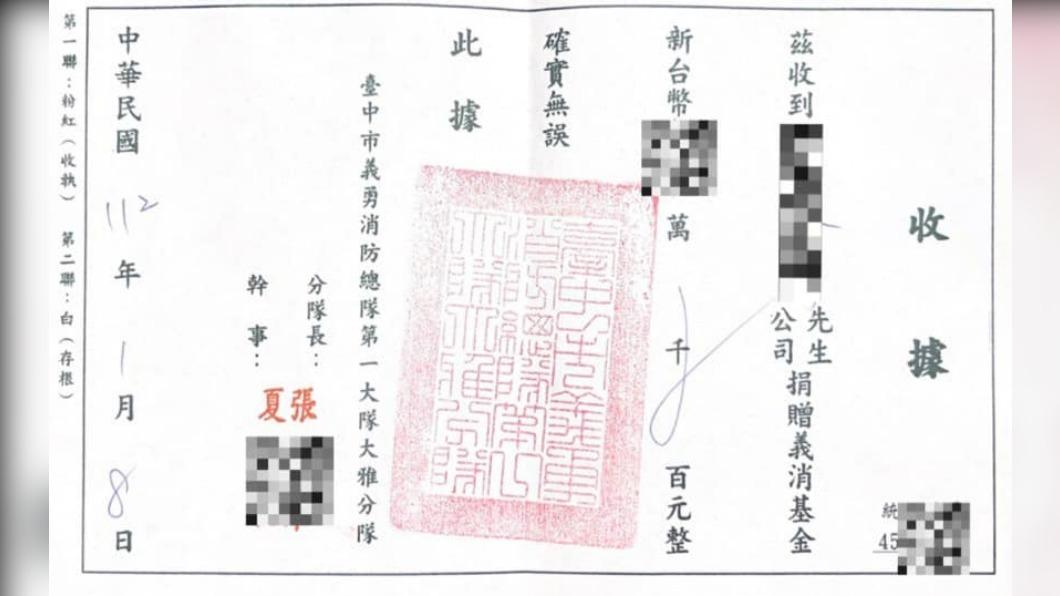 收據
統
45
茲收到
先生
公司
捐贈義消基金
新台幣
萬
千
百元整
確實無誤
此據
臺中市義勇消防總隊第一大隊大雅分隊
分隊長：
張
幹事：
夏
中華民國112年1月8日
第一聯：粉紅（收執）第二聯：白（存根）